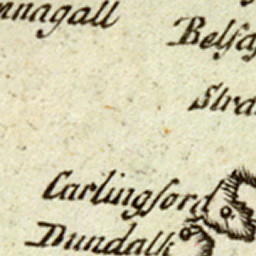 nnagall
Belfa
Stra
Carlingford
Dundalk